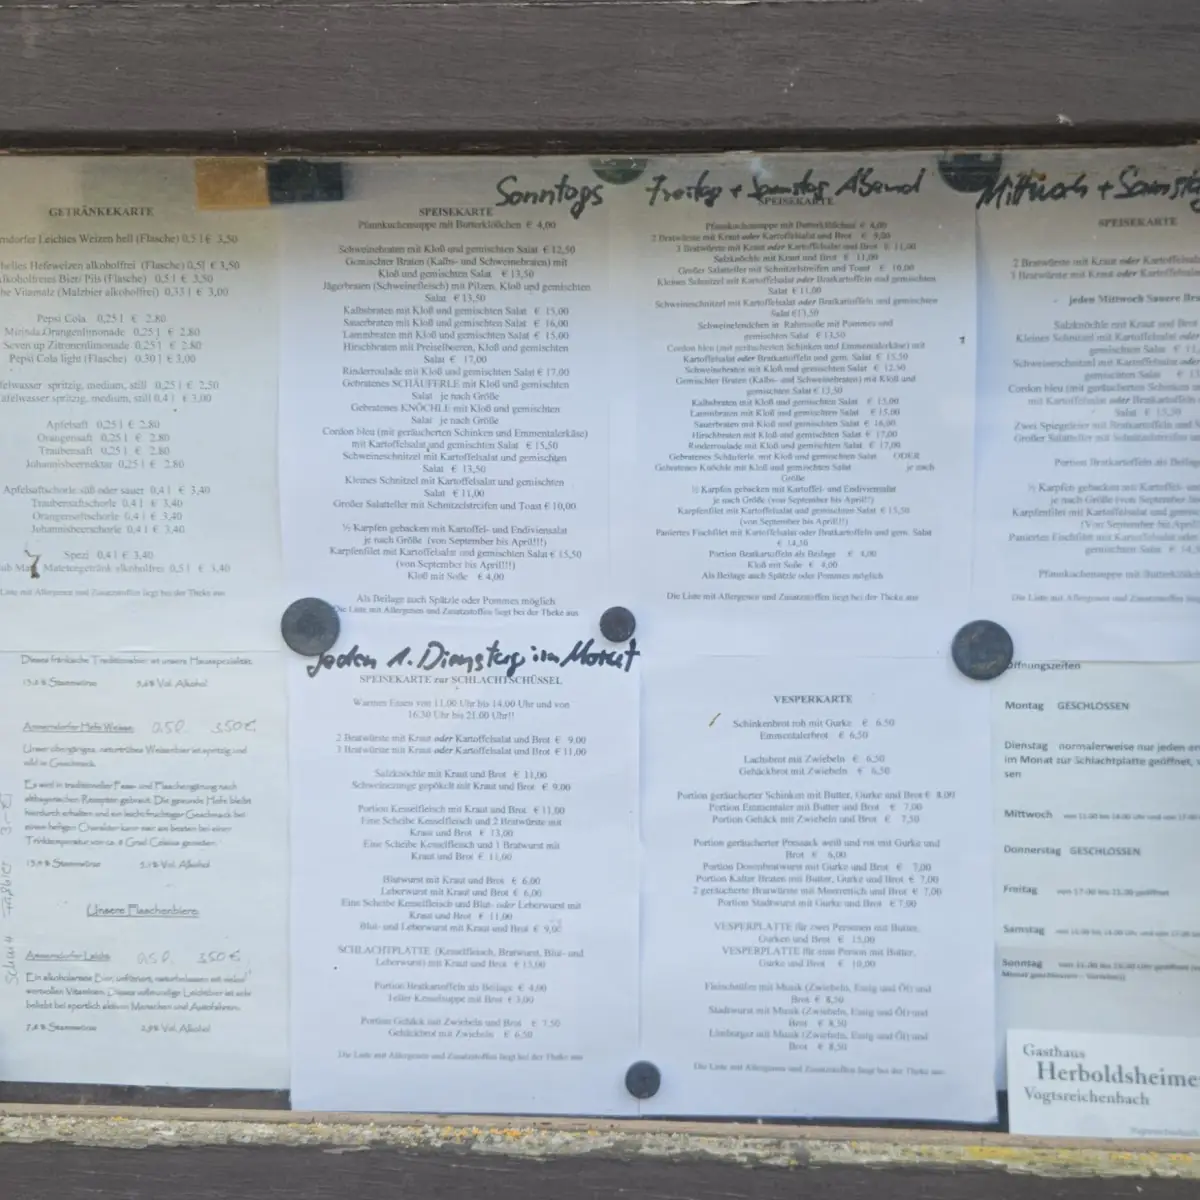 GETRÄNKEKARTE
Leichtes Weizen hell (Flasche) 0,5 l € 3,50
helles Hefeweizen alkoholfrei (Flasche) 0,5l € 3,50
lkoholfreies Bier/ Pils (Flasche) 0,5 l € 3,50
Vitamalz (Malzbier alkoholfrei) 0,33 l € 3,00
Pepsi Cola 0,25 l € 2.80
Mirinda Orangenlimonade 0,25 l € 2.80
Seven up Zitronenlimonade 0,25 l € 2.80
Pepsi Cola light (Flasche) 0,30 l € 3,00
felwasser spritzig, medium, still 0,25 l € 2.50
afelwasser spritzig, medium, still 0,4 l € 3,00
Apfelsaft 0,25 l € 2.80
Orangensaft 0,25 l € 2.80
Traubensaft 0,25 l € 2.80
Johannisbeernektar 0,25 l € 2.80
Apfelsaftschorle süß oder sauer 0,4 l € 3,40
Traubensaftschorle 0,4 l € 3,40
Orangensaftschorle 0,4 l € 3,40
Johannisbeerschorle 0,4 l € 3,40
Spezi 0,4 l € 3,40
Club Mate Matetengetränk alkoholfrei 0,5 l € 3,40
Liste mit Allergenen und Zusatzstoffen liegt bei der Theke aus
Sonntags
SPEISEKARTE
Pfannkuchensuppe mit Butterklößchen € 4,00
Schweinebraten mit Kloß und gemischten Salat € 12,50
Gemischter Braten (Kalbs- und Schweinebraten) mit
Kloß und gemischten Salat € 13,50
Jägerbraten (Schweinefleisch) mit Pilzen, Kloß und gemischten
Salat € 13,50
Kalbsbraten mit Kloß und gemischten Salat € 15,00
Sauerbraten mit Kloß und gemischten Salat € 16,00
Lammbraten mit Kloß und gemischten Salat € 15,00
Hirschbraten mit Preiselbeeren, Kloß und gemischten
Salat € 17,00
Rinderroulade mit Kloß und gemischten Salat € 17.00
Gebratenes SCHÄUFERLE mit Kloß und gemischten
Salat je nach Größe
Gebratenes KNÖCHLE mit Kloß und gemischten
Salat je nach Größe
Cordon bleu (mit geräucherten Schinken und Emmentalerkäse)
mit Kartoffelsalat und gemischten Salat € 15,50
Schweineschnitzel mit Kartoffelsalat und gemischten
Salat € 13,50
Kleines Schnitzel mit Kartoffelsalat und gemischten
Salat € 11,00
Großer Salatteller mit Schnitzelstreifen und Toast € 10,00
½ Karpfen gebacken mit Kartoffel- und Endiviensalat
je nach Größe (von September bis April!!!)
Karpfenfilet mit Kartoffelsalat und gemischten Salat € 15,50
(von September bis April!!!)
Kloß mit Soße € 4,00
Als Beilage auch Spätzle oder Pommes möglich
Die Liste mit Allergenen und Zusatzstoffen liegt bei der Theke aus
Freitag + Samstag Abend
SPEISEKARTE
Pfannkuchensuppe mit Butterklößchen € 4,00
2 Bratwürste mit Kraut oder Kartoffelsalat und Brot € 9,00
3 Bratwürste mit Kraut oder Kartoffelsalat und Brot € 11,00
Salzknöchle mit Kraut und Brot € 11,00
Großer Salatteller mit Schnitzelstreifen und Toast € 10,00
Kleines Schnitzel mit Kartoffelsalat oder Bratkartoffeln und gemischten
Salat € 11,00
Schweineschnitzel mit Kartoffelsalat oder Bratkartoffeln und gemischten
Salat €13,50
Schweinelendchen in Rahmsoße mit Pommes und
gemischten Salat € 13,50
Cordon bleu (mit geräucherten Schinken und Emmentalerkäse) mit
Kartoffelsalat oder Bratkartoffeln und gem. Salat € 15,50
Schweinebraten mit Kloß und gemischten Salat € 12,50
Gemischter Braten (Kalbs- und Schweinebraten) mit Kloß und
gemischten Salat € 13,50
Kalbsbraten mit Kloß und gemischten Salat € 15,00
Lammbraten mit Kloß und gemischten Salat € 15,00
Sauerbraten mit Kloß und gemischten Salat € 16,00
Hirschbraten mit Kloß und gemischten Salat € 17,00
Rinderroulade mit Kloß und gemischten Salat € 17,00
Gebratenes Schäuferle mit Kloß und gemischten Salat ODER
Gebratenes Knöchle mit Kloß und gemischten Salat je nach
Größe
½ Karpfen gebacken mit Kartoffel- und Endiviensalat
je nach Größe (von September bis April!!!)
Karpfenfilet mit Kartoffelsalat und gemischten Salat € 15,50
(von September bis April!!!)
Paniertes Fischfilet mit Kartoffelsalat oder Bratkartoffeln und gem. Salat
€ 14,50
Portion Bratkartoffeln als Beilage € 4,00
Kloß mit Soße € 4,00
Als Beilage auch Spätzle oder Pommes möglich
Die Liste mit Allergenen und Zusatzstoffen liegt bei der Theke aus
Mittwoch + Samstag
SPEISEKARTE
2 Bratwürste mit Kraut oder Kartoffelsalat
3 Bratwürste mit Kraut oder Kartoffelsalat
jeden Mittwoch Saure Bra
Salzknöchle mit Kraut und Brot
Kleines Schnitzel mit Kartoffelsalat oder
gemischten Salat € 11
Schweineschnitzel mit Kartoffelsalat oder
gemischten Salat € 13
Cordon bleu (mit geräucherten Schinken
Salat € 15,50
Zwei Spiegeleier mit Bratkartoffeln und S
Großer Salatteller mit Schnitzelstreifen
Portion Bratkartoffeln als Beilage
½ Karpfen gebacken mit Kartoffel- und
je nach Größe (von September
Karpfenfilet mit Kartoffelsalat und gemischten
(Von September bis April
Paniertes Fischfilet mit Kartoffelsalat oder
gemischten Salat € 14,
Pfannkuchensuppe mit Butterklöß
Die Liste mit Allergenen und Zusatzstoffen
Dieses fränkische Traditionsbier ist unsere Hausspezialität.
Stammwürze Vol. Alkohol
Ammerndorfer Hefe Weizen 0,5l. 3,50€
Unser obergäriges, naturtrübes Weissenbier ist spritzig und
mild in Geschmack.
Es wird in traditioneller Fass- und Flaschengärung nach
althergebrachten Rezepten gebraut. Die gesunde Hefe bleibt
hierdurch erhalten und ein leicht fruchtiger Geschmack bei
einem hefigen Charakter kann man am besten bei einer
Trinktemperatur von ca. 8 Grad Celsius genießen.
Stammwürze Vol. Alkohol
Unsere Flaschenbiere:
Ammerndorfer Leicht 0,5l. 3,50€
Ein alkoholarmes Bier, unfiltriert, naturbelassen mit vielen
wertvollen Vitaminen. Dieses vollmundige Leichtbier ist sehr
beliebt bei sportlich aktiven Menschen und Autofahrern.
Stammwürze Vol. Alkohol
Jeden 1. Dienstag im Monat
SPEISEKARTE zur SCHLACHTSCHÜSSEL
Warmes Essen von 11.00 Uhr bis 14.00 Uhr und von
16.30 Uhr bis 21.00 Uhr!!
2 Bratwürste mit Kraut oder Kartoffelsalat und Brot € 9.00
3 Bratwürste mit Kraut oder Kartoffelsalat und Brot € 11,00
Salzknöchle mit Kraut und Brot € 11,00
Schweinezunge gepökelt mit Kraut und Brot € 9,00
Portion Kesselfleisch mit Kraut und Brot € 11,00
Eine Scheibe Kesselfleisch und 2 Bratwürste mit
Kraut und Brot € 13,00
Eine Scheibe Kesselfleisch und 1 Bratwurst mit
Kraut und Brot € 11,00
Blutwurst mit Kraut und Brot € 6,00
Leberwurst mit Kraut und Brot € 6,00
Eine Scheibe Kesselfleisch und Blut- oder Leberwurst mit
Kraut und Brot € 11,00
Blut- und Leberwurst mit Kraut und Brot € 9,00
SCHLACHTPLATTE (Kesselfleisch, Bratwurst, Blut- und
Leberwurst) mit Kraut und Brot € 13,00
Portion Bratkartoffeln als Beilage € 4,00
Teller Kesselsuppe mit Brot € 3,00
Portion Gehäck mit Zwiebeln und Brot € 7,50
Gehäckbrot mit Zwiebeln € 6,50
Die Liste mit Allergenen und Zusatzstoffen liegt bei der Theke aus
VESPERKARTE
Schinkenbrot roh mit Gurke € 6,50
Emmentalerbrot € 6,50
Lachsbrot mit Zwiebeln € 6,50
Gehäckbrot mit Zwiebeln € 6,50
Portion geräucherter Schinken mit Butter, Gurke und Brot € 8,00
Portion Emmentaler mit Butter und Brot € 7,00
Portion Gehäck mit Zwiebeln und Brot € 7,50
Portion geräucherter Pressack weiß und rot mit Gurke und
Brot € 6,00
Portion Dosenbratwurst mit Gurke und Brot € 7,00
Portion Kalter Braten mit Butter, Gurke und Brot € 7,00
2 geräucherte Bratwürste mit Meerrettich und Brot € 7,00
Portion Stadtwurst mit Gurke und Brot € 7,00
VESPERPLATTE für zwei Personen mit Butter,
Gurken und Brot € 15,00
VESPERPLATTE für eine Person mit Butter,
Gurke und Brot € 10,00
Fleischsülze mit Musik (Zwiebeln, Essig und Öl) und
Brot € 8,50
Stadtwurst mit Musik (Zwiebeln, Essig und Öl) und
Brot € 8,50
Limburger mit Musik (Zwiebeln, Essig und Öl) und
Brot € 8,50
Die Liste mit Allergenen und Zusatzstoffen liegt bei der Theke aus
Öffnungszeiten
Montag GESCHLOSSEN
Dienstag normalerweise nur jeden er
im Monat zur Schlachtplatte geöffnet,
sen
Mittwoch von 11:00 bis 14:00 Uhr und von 17:00
Donnerstag GESCHLOSSEN
Freitag von 17:00 bis 21:00 geöffnet
Samstag
Sonntag
Gasthaus
Herboldsheime
Vogtsreichenbach